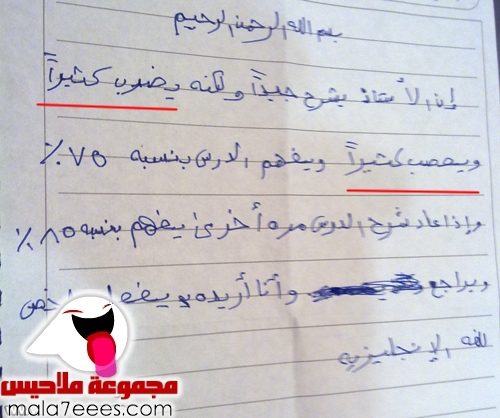 بسم الله الرحمن الرحيم
إن الأستاذ يشرح جيداً ولكنه يضرب كثيراً
ويعصب كثيراً ويفهم الدرس بنسبه ٧٥٪
وإذا عاد شرح الدرس مره أخرى يفهم بنسبه ٨٥٪
ويراجع وأنا أريده
للغه الإنجليزيه
مجموعة ملاحيس
mala7eees.com